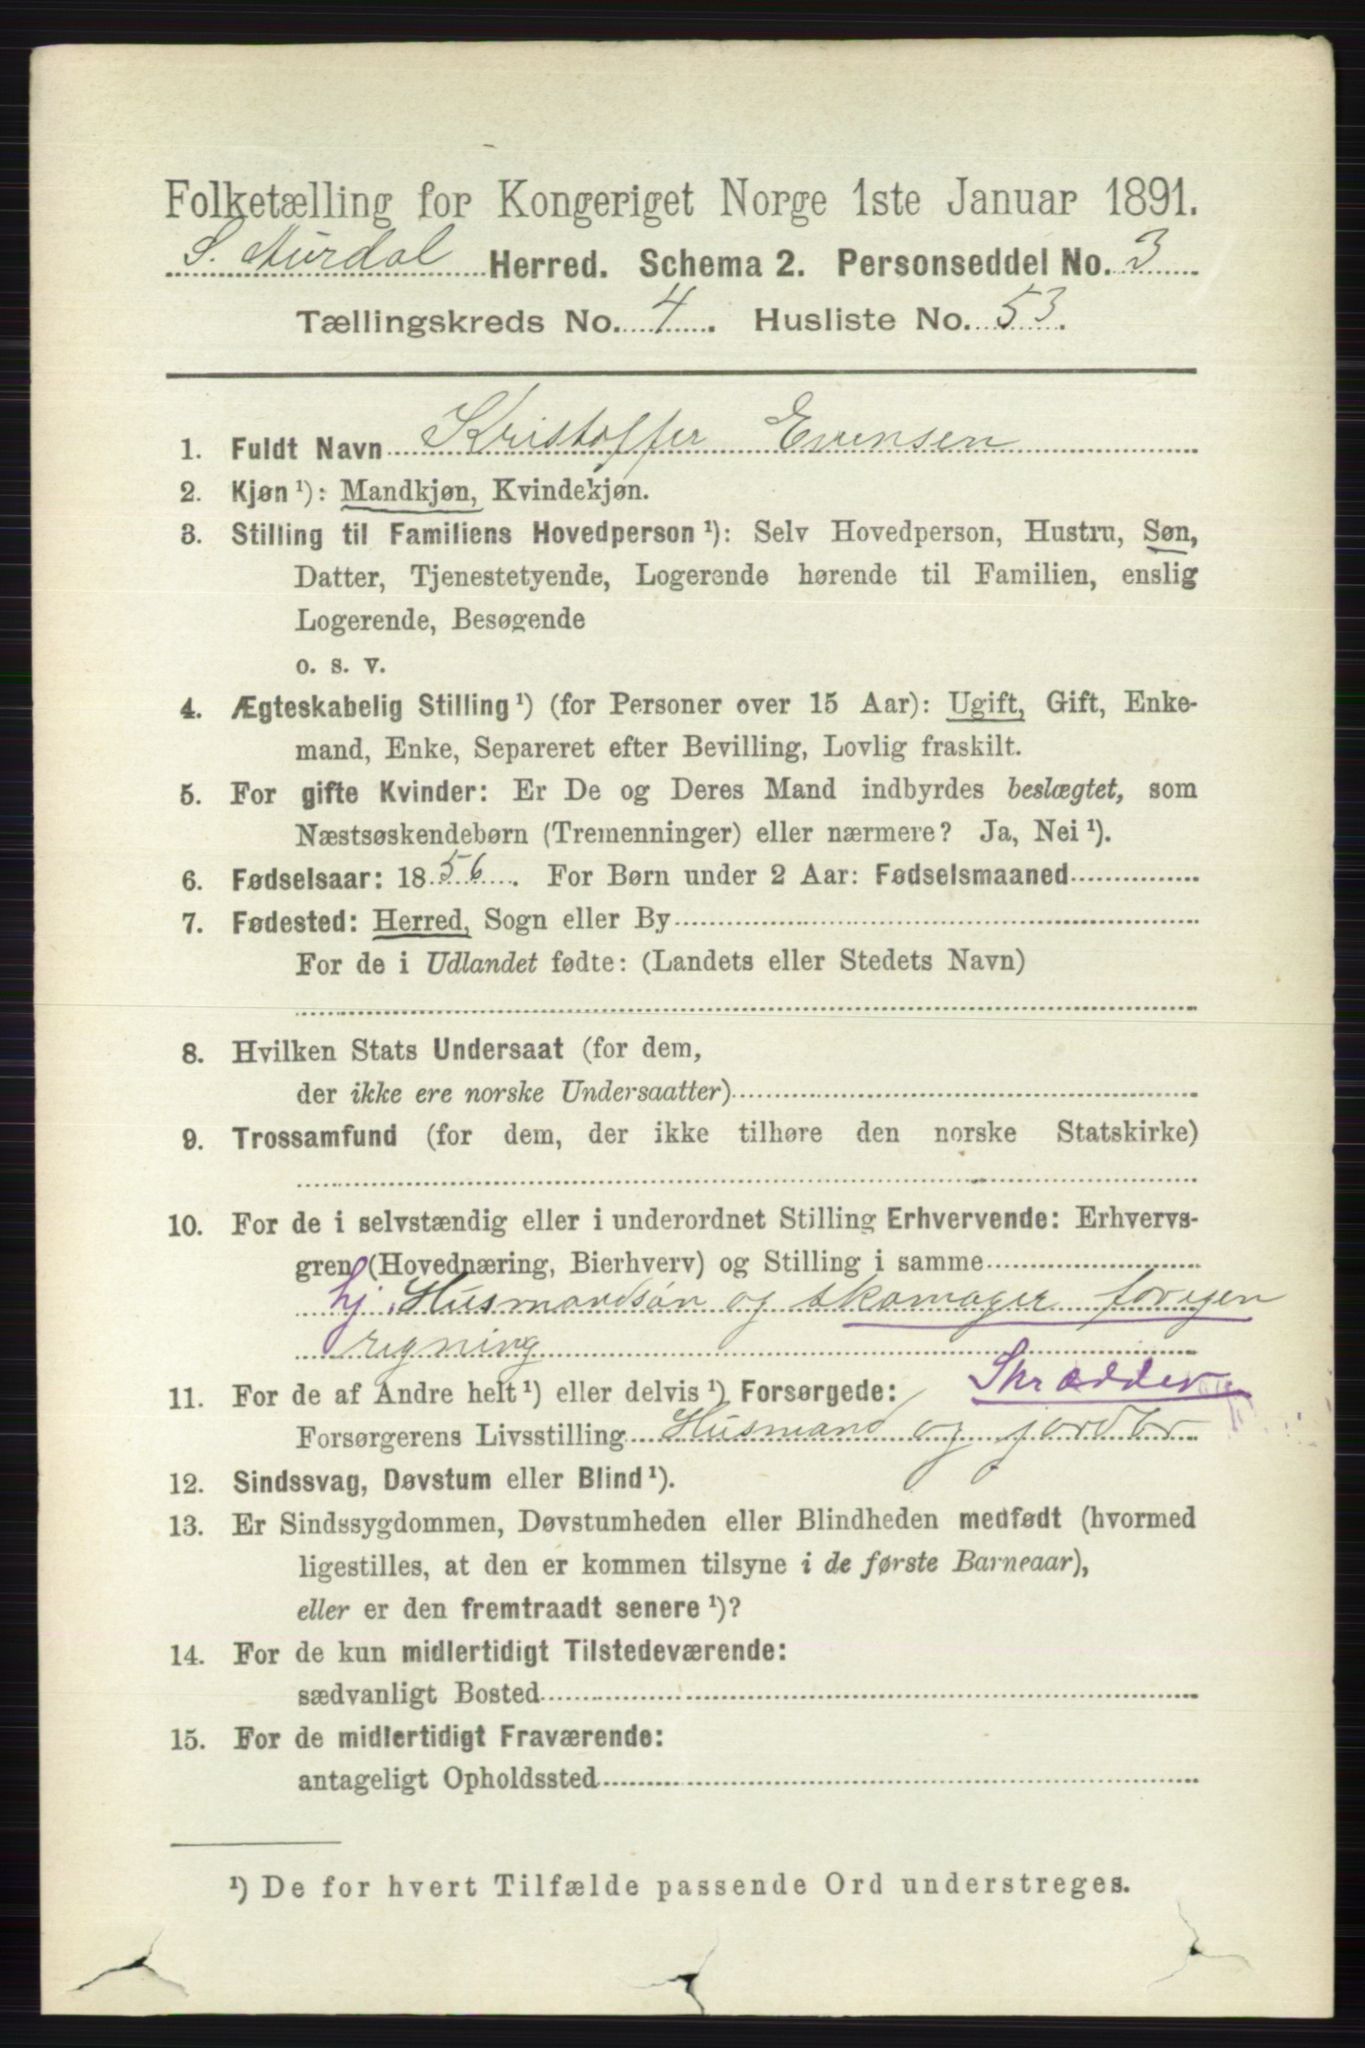 Folketælling for Kongeriget Norge 1ste Januar 1891.
S. Aurdal Herred. Schema 2. Personseddel No. 3
Tællingskreds No. 4. Husliste No. 53.
1. Fuldt Navn Kristoffer Evensen
2. Kjøn ¹): Mandkjøn, Kvindekjøn.
3. Stilling til Familiens Hovedperson ¹): Selv Hovedperson, Hustru, Søn,
Datter, Tjenestetyende, Logerende hørende til Familien, enslig
Logerende, Besøgende
o. s. v.
4. Ægteskabelig Stilling ¹) (for Personer over 15 Aar): Ugift, Gift, Enke-
mand, Enke, Separeret efter Bevilling, Lovlig fraskilt.
5. For gifte Kvinder: Er De og Deres Mand indbyrdes beslægtet, som
Næstsøskendebørn (Tremenninger) eller nærmere? Ja, Nei ¹).
6. Fødselsaar: 1856. For Børn under 2 Aar: Fødselsmaaned
7. Fødested: Herred, Sogn eller By
For de i Udlandet fødte: (Landets eller Stedets Navn)
8. Hvilken Stats Undersaat (for dem,
der ikke ere norske Undersaatter)
9. Trossamfund (for dem, der ikke tilhøre den norske Statskirke)
10. For de i selvstændig eller i underordnet Stilling Erhvervende: Erhvervs-
gren (Hovednæring, Bierhverv) og Stilling i samme
hj. Husmandsøn og skomager for egen
regning
Skrædder
11. For de af Andre helt ¹) eller delvis ¹) Forsørgede:
Forsørgerens Livsstilling Husmand og jordbr
12. Sindssvag, Døvstum eller Blind ¹).
13. Er Sindssygdommen, Døvstumheden eller Blindheden medfødt (hvormed
ligestilles, at den er kommen tilsyne i de første Barneaar),
eller er den fremtraadt senere ¹)?
14. For de kun midlertidigt Tilstedeværende:
sædvanligt Bosted
15. For de midlertidigt Fraværende:
antageligt Opholdssted
¹) De for hvert Tilfælde passende Ord understreges.